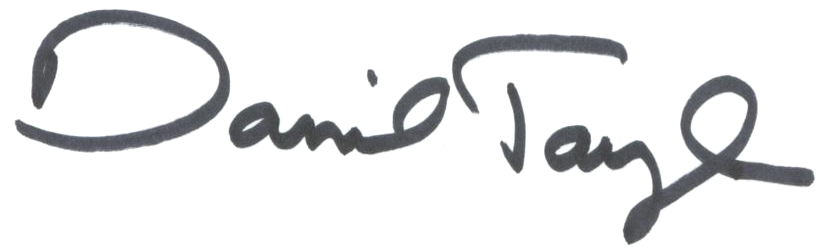 Daniel Tayl